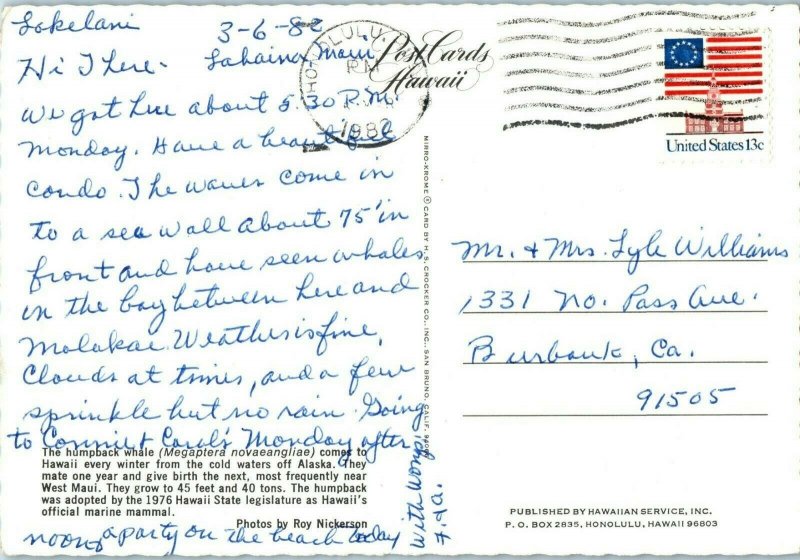 Lokelani 3-6-82
Hi There. Lahaina, Maui
We got here about 5:30 P.M.
Monday. Have a beautiful
condo. The waves come in
to a sea wall about 75' in
front and have seen whales
in the bay between here and
Molakai. Weather is fine,
Clouds at times, and a few
sprinkle but no rain. Going
to Connie + Carol's Monday after
noon, a party on the beach today
with
The humpback whale (Megaptera novaeangliae) comes to
Hawaii every winter from the cold waters off Alaska. They
mate one year and give birth the next, most frequently near
West Maui. They grow to 45 feet and 40 tons. The humpback
was adopted by the 1976 Hawaii State legislature as Hawaii's
official marine mammal.
Photos by Roy Nickerson
MIRRO-KROME ® CARD BY H. S. CROCKER CO., INC., SAN BRUNO, CALIF.
Post Cards
Hawaii
HONOLULU,
PM
1982
United States 13c
Mr. + Mrs. Lyle Williams
1331 No. Pass Ave.
Burbank, Ca.
91505
PUBLISHED BY HAWAIIAN SERVICE, INC.
P. O. BOX 2835, HONOLULU, HAWAII 96803